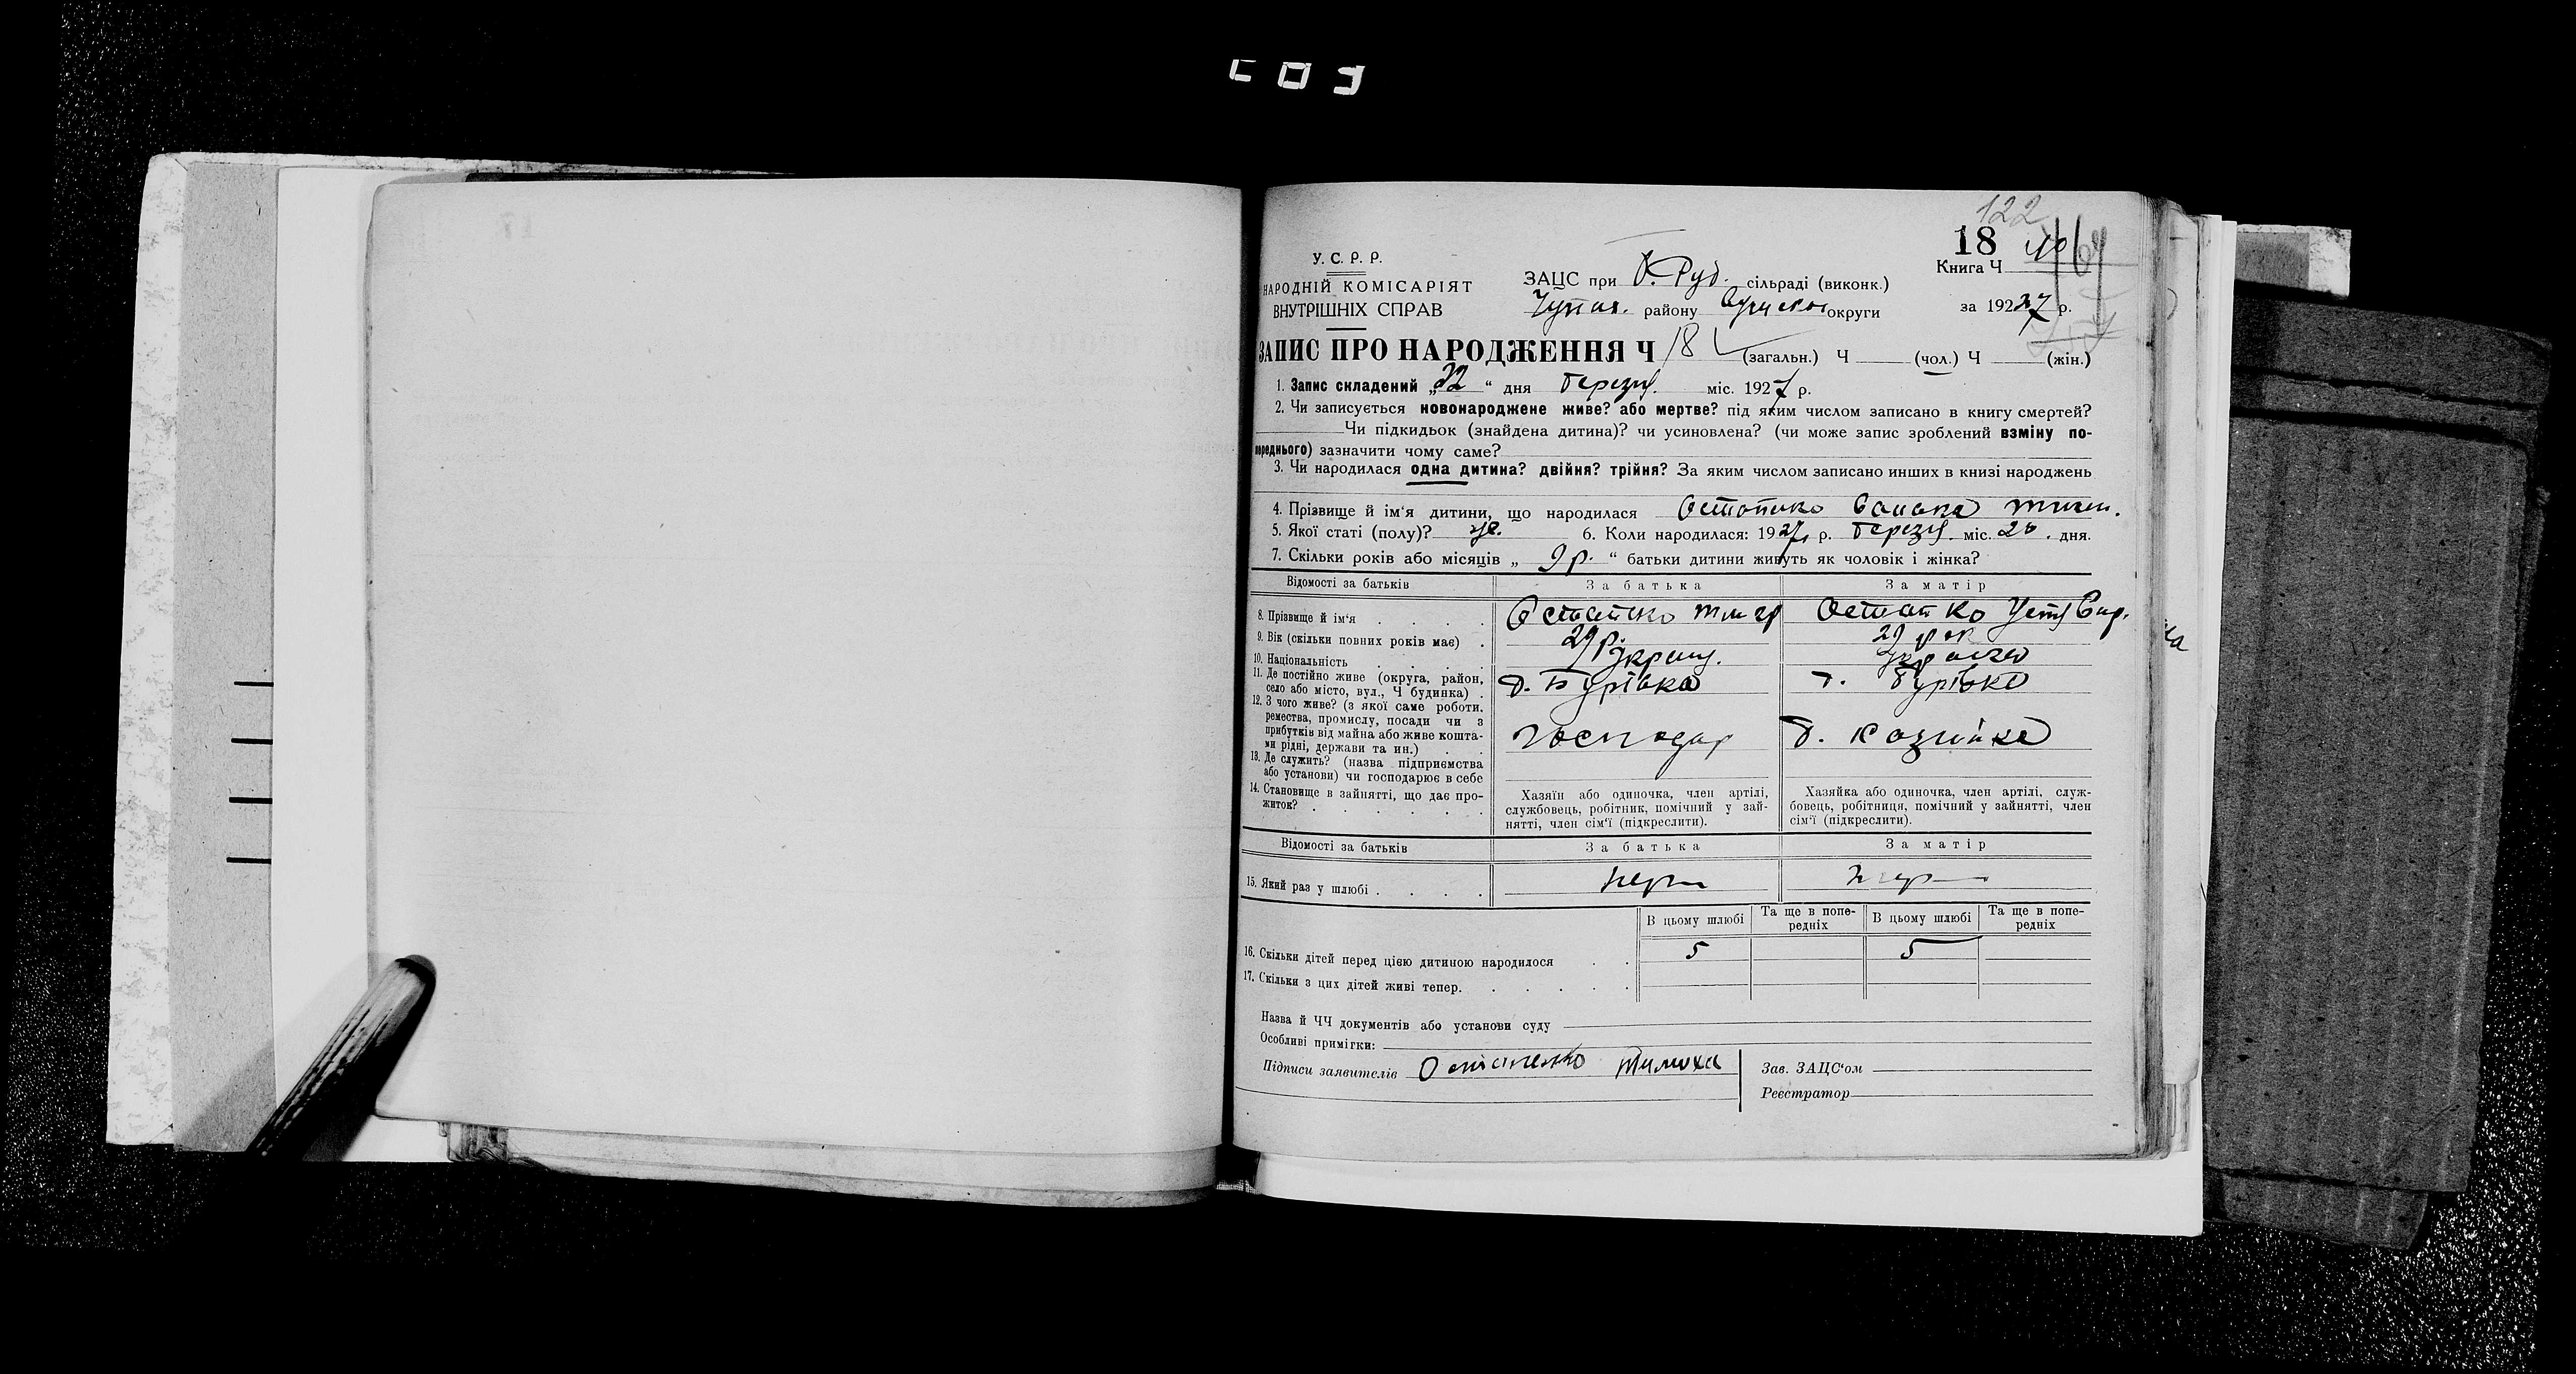 122
18
У. С. Р. Р.
Книга Ч
НАРОДНІЙ КОМІСАРІЯТ
ЗАЦС при В. Руд. сільраді (виконк.)
ВНУТРІШНІХ СПРАВ
району округи за 19227 р.
ЗАПИС ПРО НАРОДЖЕННЯ Ч 18 (загальн.) Ч (чол.) Ч (жін.)
1. Запис складений „22“ дня березня міс. 1927 р.
2. Чи записується новонароджене живе? або мертве? під яким числом записано в книгу смертей?
Чи підкидьок (знайдена дитина)? чи усиновлена? (чи може запис зроблений взміну по-
переднього) зазначити чому саме?
3. Чи народилася одна дитина? двійня? трійня? За яким числом записано инших в книзі народжень
4. Прізвище й ім‘я дитини, що народилася
5. Якої статі (полу)? ж. 6. Коли народилася: 1927 р. березня міс. 20. дня.
7. Скільки років або місяців „ 9 р. “ батьки дитини живуть як чоловік і жінка?
Відомості за батьків За батька За матір
8. Прізвище й ім‘я
9. Вік (скільки повних років має) 29 р. 29 рок
10. Національність
11. Де постійно живе (округа, район, д. Бурівка д. Бурівка
село або місто, вул., Ч будинка)
12. З чого живе? (з якої саме роботи,
ремества, промислу, посади чи з
прибутків від майна або живе кошта- господар
ми рідні, держави та ин.)
13. Де служить? (назва підприємства
або установи) чи господарює в себе
14. Становище в зайнятті, що дає про-
житок?
Хазяїн або одиночка, член артілі,
службовець, робітник, помічний у зай-
нятті, член сім‘ї (підкреслити).
Хазяйка або одиночка, член артілі, служ-
бовець, робітниця, помічний у зайнятті, член
сім‘ї (підкреслити).
Відомості за батьків За батька За матір
15. Який раз у шлюбі
В цьому шлюбі Та ще в попе- В цьому шлюбі Та ще в попе-
редніх редніх
16. Скільки дітей перед цією дитиною народилося 5 5
17. Скільки з цих дітей живі тепер.
Назва й ЧЧ документів або установи суду
Особливі примітки:
Підписи заявителів Остапенко Тимоха Зав. ЗАЦС‘ом
Реєстратор